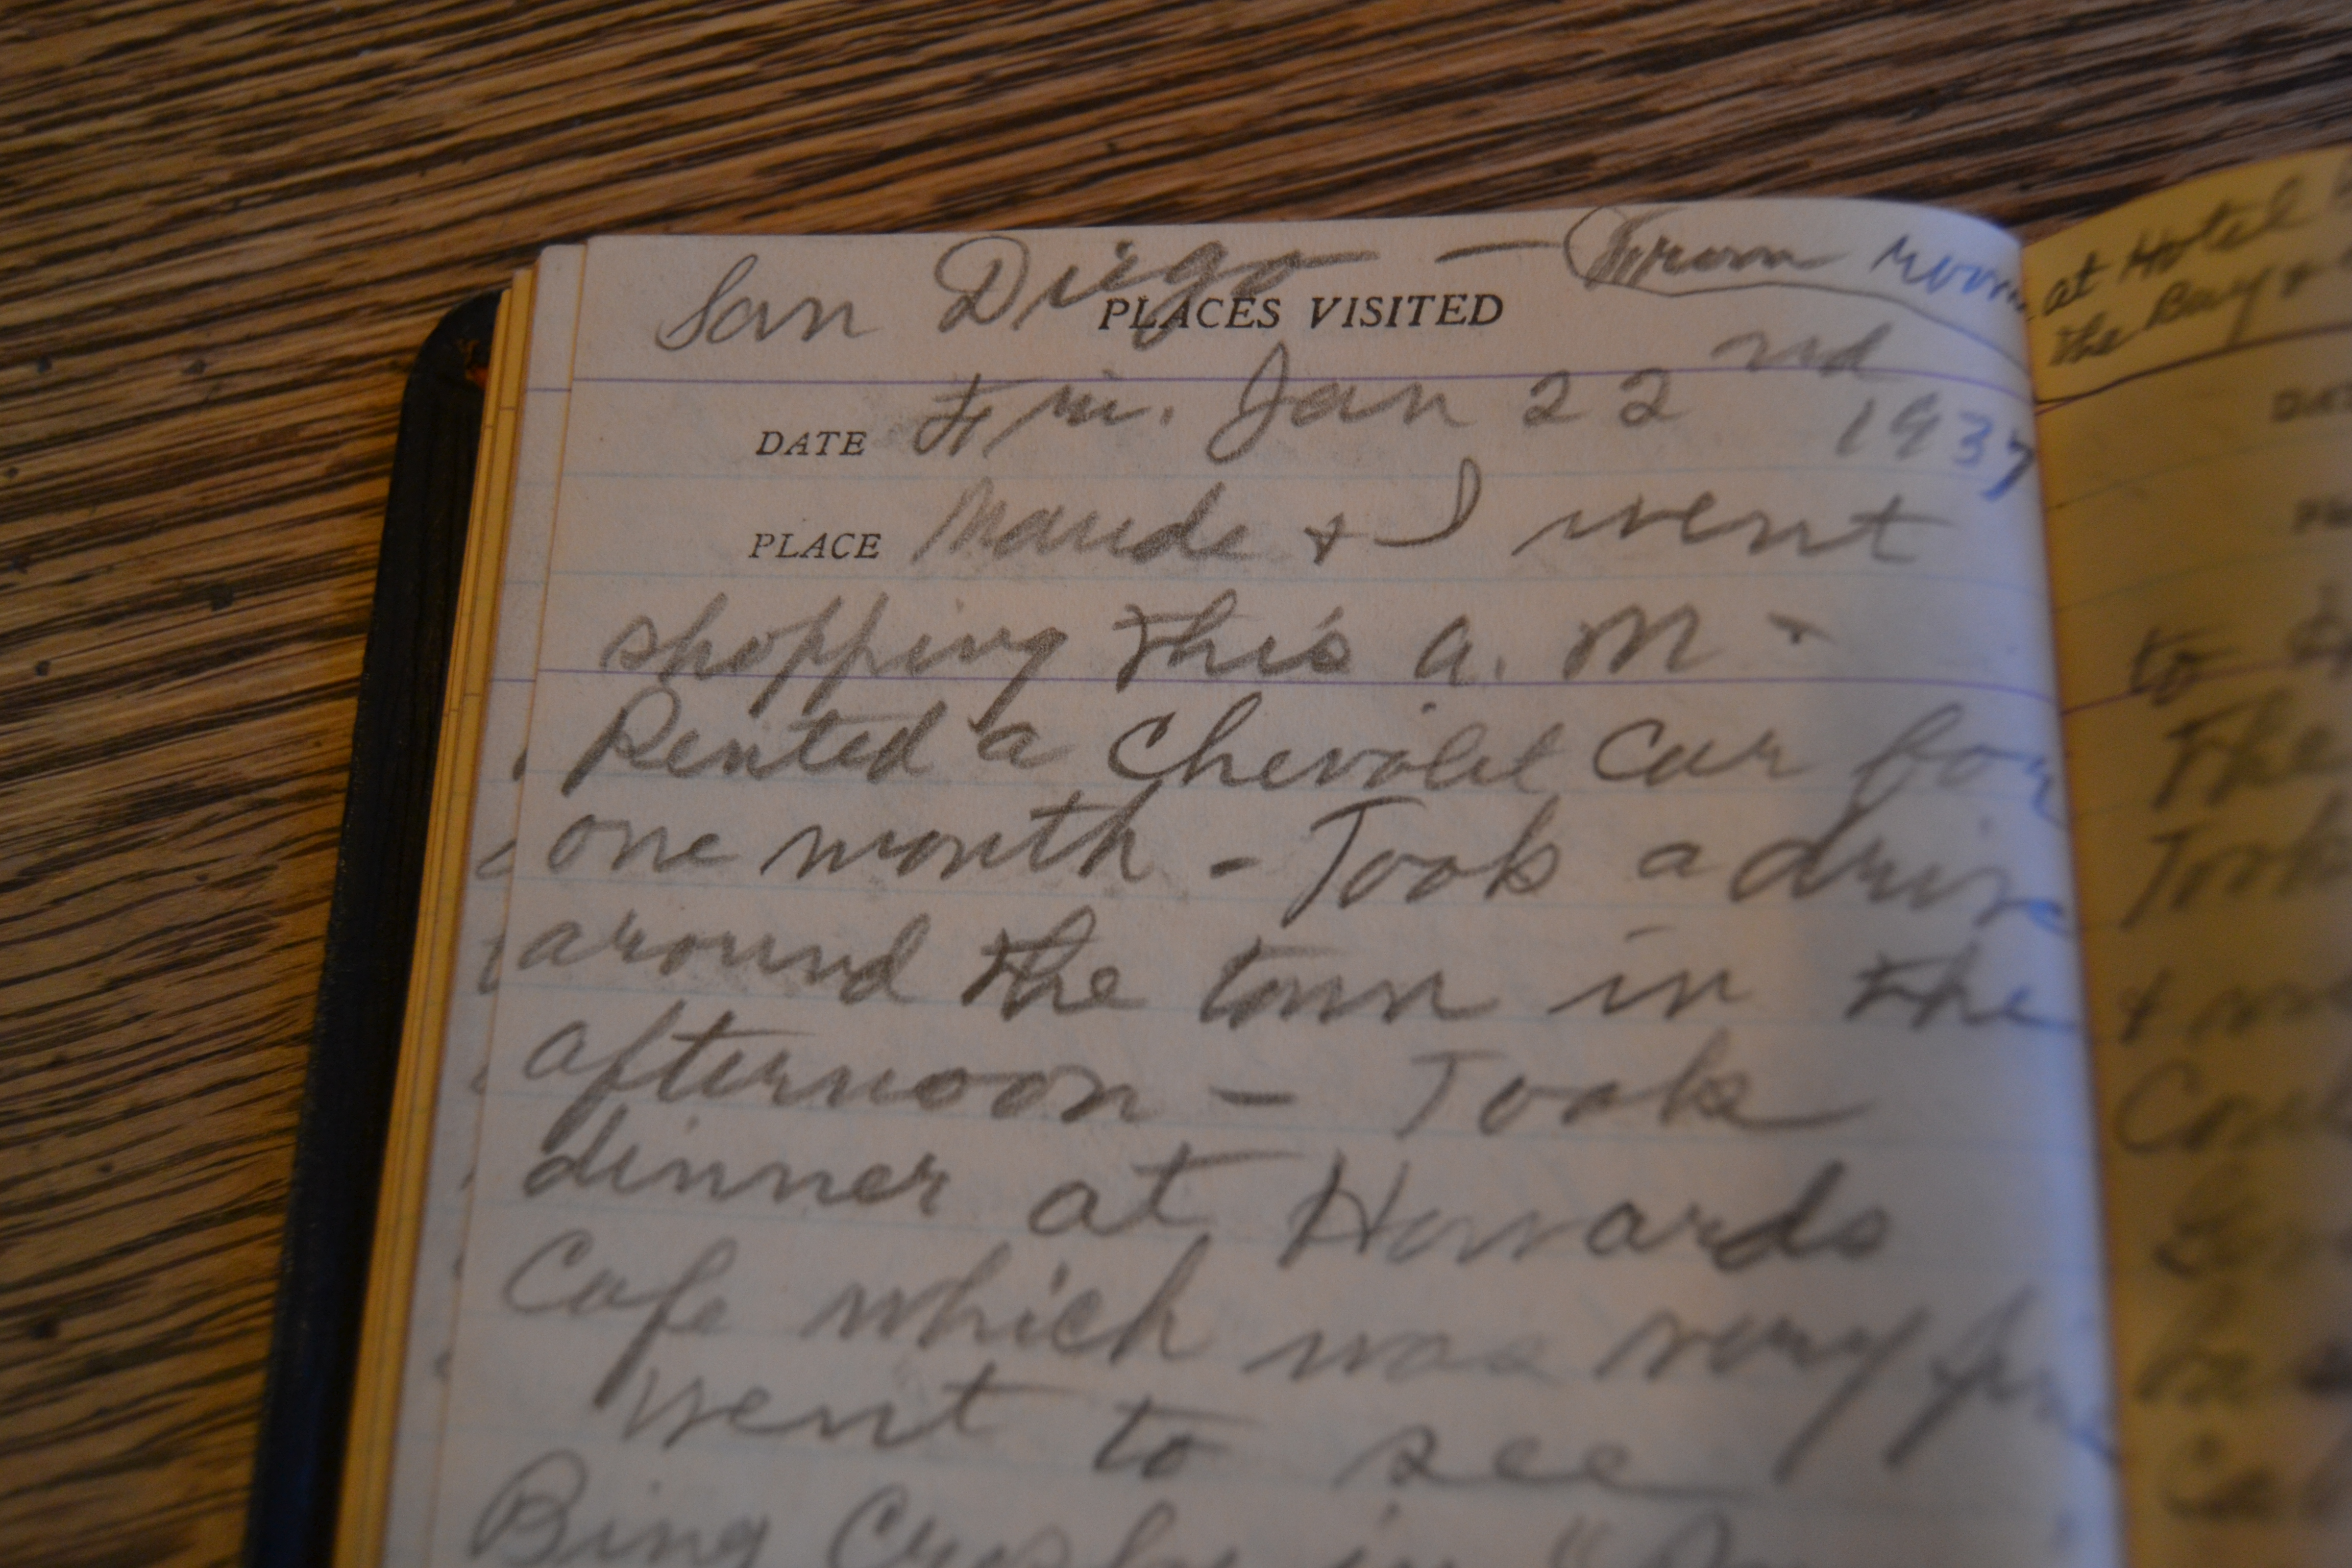 San Diego — From room
PLACES VISITED
DATE Fri. Jan 22nd 1937
PLACE Maude + I went
shopping this a. m.
Rented a Chevolet Car for
one month - Took a drive
around the town in the
afternoon - Took
dinner at Howards
Cafe which was very fine
Went to see
Bing Crosby in "
at Hotel
the Bay +
to
The
Took
+